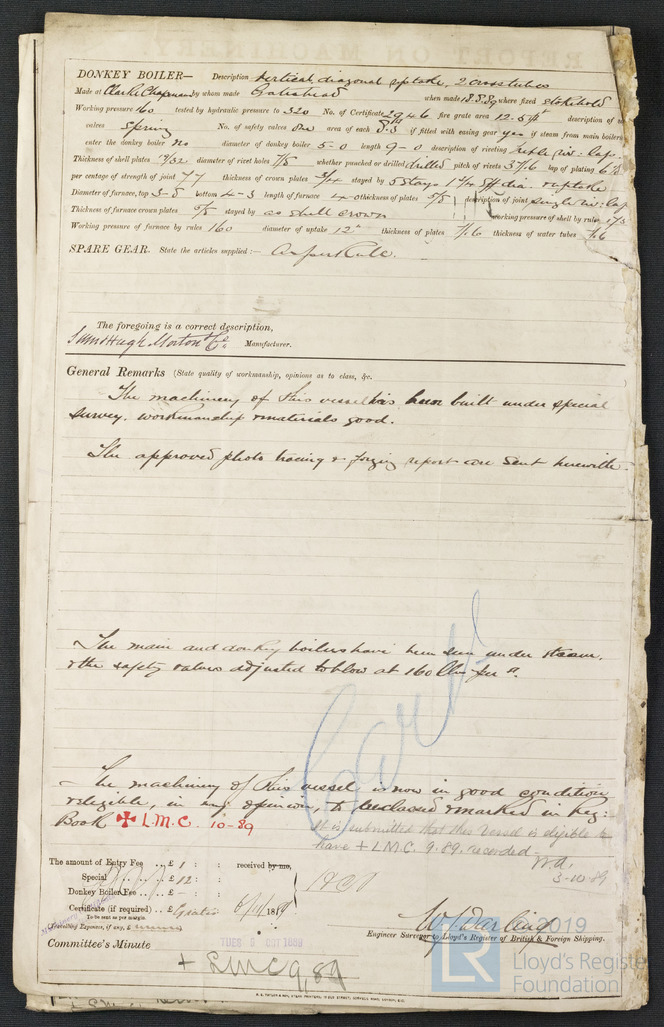 DONKEY BOILER— Description Vertical, diagonal uptake, 2 cross tubes
Made at Clarke Chapman by whom made Gateshead when made 1889 where fixed stokehold
Working pressure 160 tested by hydraulic pressure to 320 No. of Certificate 2946 fire grate area 12.5 description of
valves Spring No. of safety valves one area of each 8.3 if fitted with easing gear yes if steam from main boilers
enter the donkey boiler no diameter of donkey boiler 5-0 length 9-0 description of riveting
Thickness of shell plates 17/32 diameter of rivet holes 7/8 whether punched or drilled drilled pitch of rivets 3 7/16 lap of plating
per centage of strength of joint 77 thickness of crown plates 3/4 stayed by 5 stays 1 3/4 dia. uptake
Diameter of furnace, top 3-8 bottom 4-3 length of furnace 4-0 thickness of plates 5/8 description of joint single riv: lap
Thickness of furnace crown plates 5/8 stayed by as shell crown working pressure of shell by rules 173
Working pressure of furnace by rules 160 diameter of uptake 12" thickness of plates 7/16 thickness of water tubes 7/16
SPARE GEAR. State the articles supplied:— As per Rule.
The foregoing is a correct description,
Hugh Morton & Co Manufacturer.
General Remarks (State quality of workmanship, opinions as to class, &c.
The machinery of this vessel has been built under special
survey. workmanship & materials good.
The approved photo tracing & forging report are sent herewith
The main and donkey boilers have been seen under steam,
& the safety valves adjusted to blow at 160 lbs per □".
The machinery of this vessel is now in good condition
& eligible, in my opinion, to be classed & marked in Reg:
Book ✠ L.M.C. 10-89
It is submitted that this vessel is eligible to
have + L.M.C. 9.89. recorded
3-10-89
The amount of Entry Fee .. £ 1 : : received by me,
Special .. .. £ 12 :
Donkey Boiler Fee .. £ – :
Certificate (if required) .. £ Gratis 18
To be sent as per margin.
(Travelling Expenses, if any, £
W. J. Darling
Engineer Surveyor to Lloyd's Register of British & Foreign Shipping.
Committee's Minute
TUES OCT 1889
+ LMC 9,89
2019
LR
Lloyd's Register
Foundation